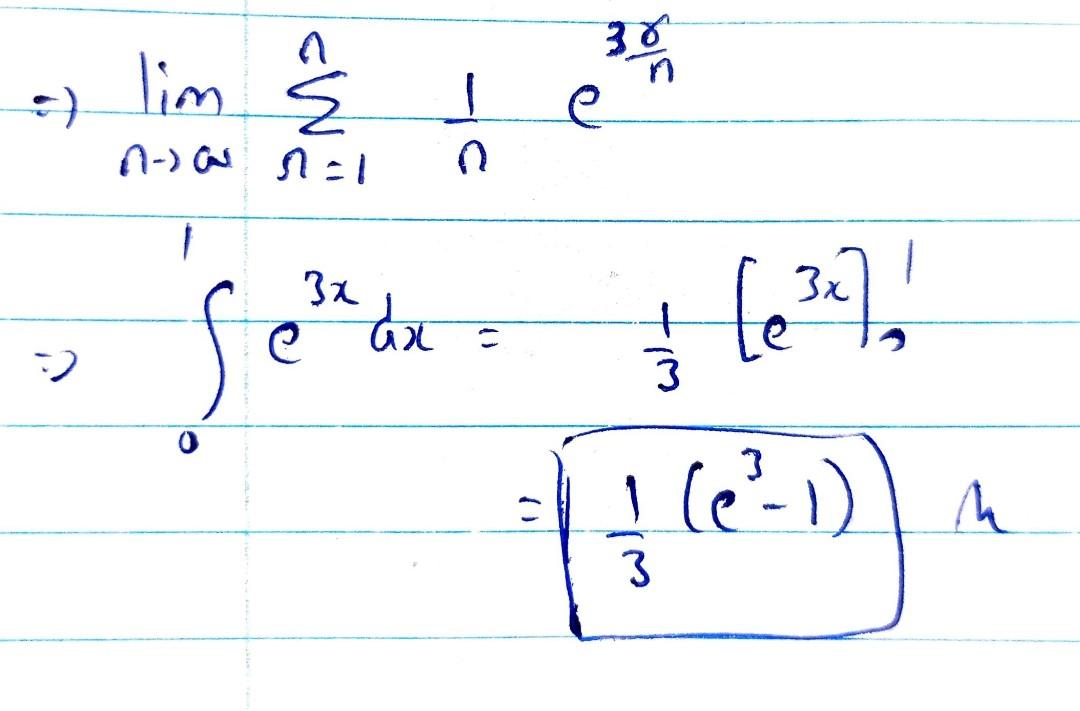 ⇒ lim n→∞ n Σ n=1 1/n e^(3r/n)
⇒ ∫₀¹ e^(3x) dx = 1/3 [e^(3x)]₀¹
= 1/3 (e³-1)